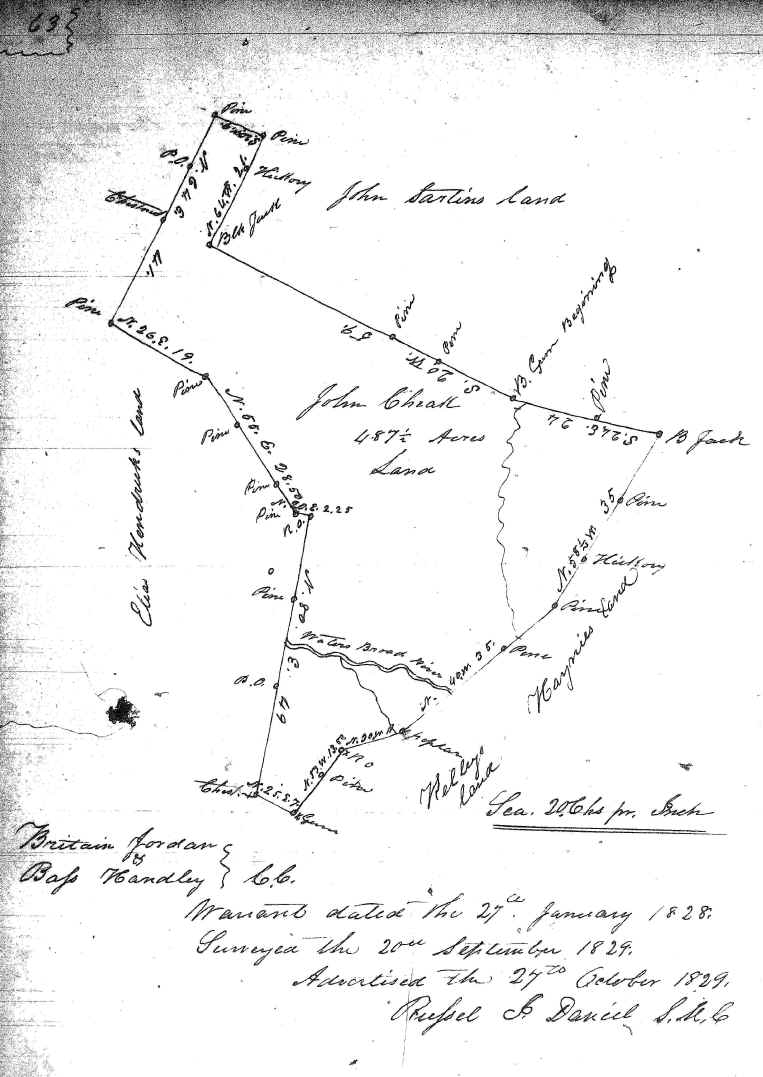 63
Pine
Pine
B.O.
N. 64 E
41.
N. 64. W. 26
Hickory
Blk Jack
John Sartins Land
Pine
N. 26. E. 19.
Pine
59.
Pine
Pine
S. 20 W.
B. Gum Begining
Pine
S. 24 E. 24
B Jack
John Cheak
487½ Acres
Land
N. 55. E. 28.50
Pine
Pine
Pine
E. 2.25
R.O.
Elias Hendricks Land
Pine
N. 80. E. 49
Waters Broad River
B.O.
N. 58½ W. 35
Pine
Hickory
Pine
Haynies Land
Pine
N. 40 W. 35.
Poplar
Kelleys
Land
R O
Pine
Chest.
N. 25. E. 7
Gum
Sca. 20 Chs pr. Inch
Britain Jordan
&
Bass Handley } C.C.
Warrant dated the 27th. January 1828.
Surveyed the 20th September 1829.
Advertised the 27th October 1829.
Russel J. Daniel S.M.C